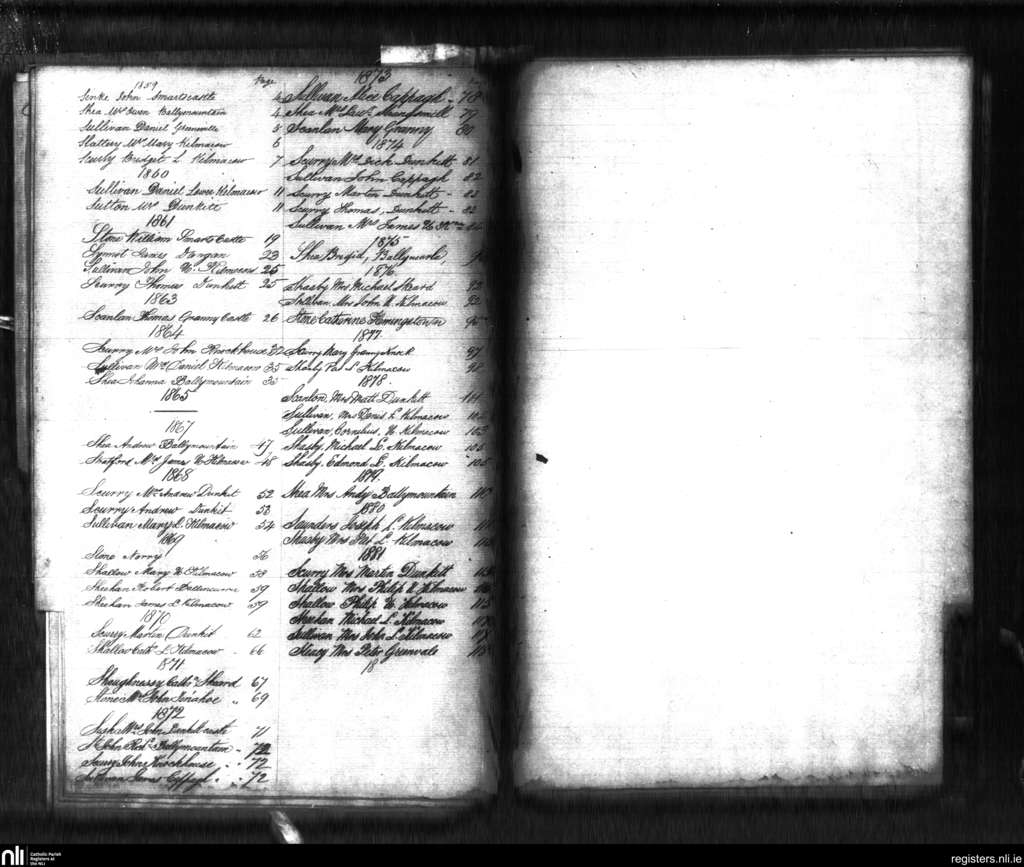 1859
Page
Senke John Smartscastle 4
Shea Mr Owen Ballymountain 4
Sullivan Daniel Greenville 5
Slattery Mrs Mary Kilmacow 6
Scurly Bridget L Kilmacow 7
1860
Sullivan Daniel Lower Kilmacow 11
Sutton Mr Dunkitt 11
1861
Stone William Smarts Castle 19
James Dargan 23
Sullivan John U. Kilmacow 25
Scurry Thomas Dunkitt 25
1863
Scanlan Thomas Granny Castle 26
1864
Scurry Mrs John Knockhouse 32
Sullivan Mrs Daniel Kilmacow 35
Shea Johanna Ballymountain 35
1865
1867
Shea Andrew Ballymountain 47
Stratford Mrs James U Kilmacow 48
1868
Scurry Mrs Andrew Dunkit 52
Scurry Andrew Dunkit 53
Sullivan Mary L. Kilmacow 54
1869
Stone Norry 56
Shallow Mary U Kilmacow 58
Sheehan Robert 59
Sheehan James L Kilmacow 59
1870
Scurry Martin Dunkit 62
Shallow Cath. L. Kilmacow 66
1871
Shaughnessy Cath. Skeard 67
Stone Mrs John 69
1872
Mrs John Dunkit castle 71
St John Rich.d Ballymountain 72
Scurry John Knockhouse 72
Sullivan James Cappagh 72
1873
Sullivan Alice Cappagh 78
Shea Mrs Strangsmill 79
Scanlan Mary Granny 80
1874
Scurry Mrs Dick Dunkitt 81
Sullivan John Cappagh 82
Scurry Martin Dunkitt 83
Scurry Thomas, Dunkitt 83
Sullivan Mrs James U 84
1875
Shea Brigid, Ballynearla,
1876
Shasby Mrs Michael Skeard 92
Sullivan Mrs John U. Kilmacow 92
Stone Catherine Flemingstown 95
1877
Scurry Mary Granny Knock 97
Shasby Pat L Kilmacow 98
1878.
Scanlon, Mrs Matt Dunkitt 101
Sullivan, Mrs Denis L Kilmacow 102
Sullivan, Cornelius, U Kilmacow 103
Shasby, Michael L. Kilmacow 105
Shasby, Edmond L. Kilmacow 105
1879.
Shea Mrs Andy Ballymountain 107
1880
Saunders Joseph L. Kilmacow
Shasby Mrs Pat L Kilmacow
1881
Scurry Mrs Martin Dunkitt
Shallow Mrs Philip U Kilmacow
Shallow Philip U. Kilmacow 115
Sheehan Michael L. Kilmacow
Sullivan Mrs John L. Kilmacow
Mrs Peter Greenvale
18
nli
Catholic Parish
Registers at
the NLI
registers.nli.ie